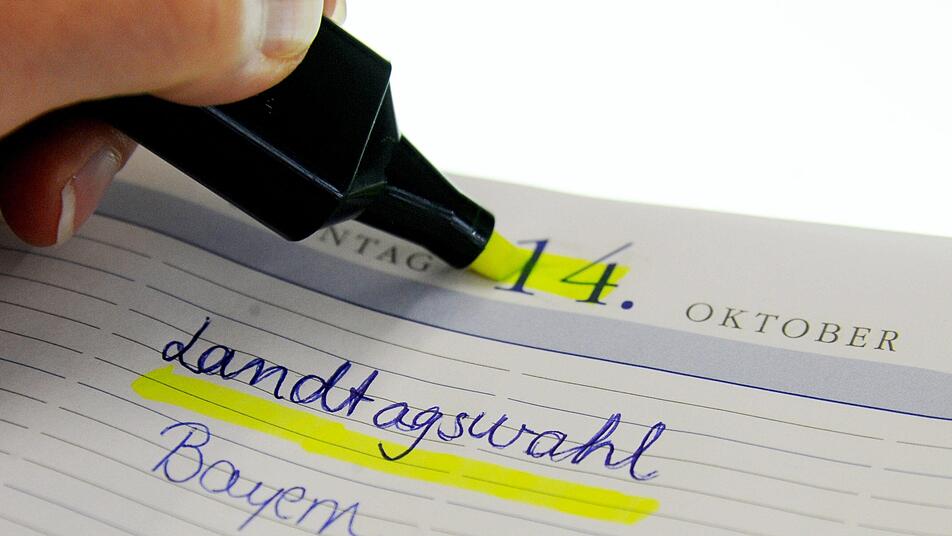 NTAG 14. OKTOBER
Landtagswahl
Bayern